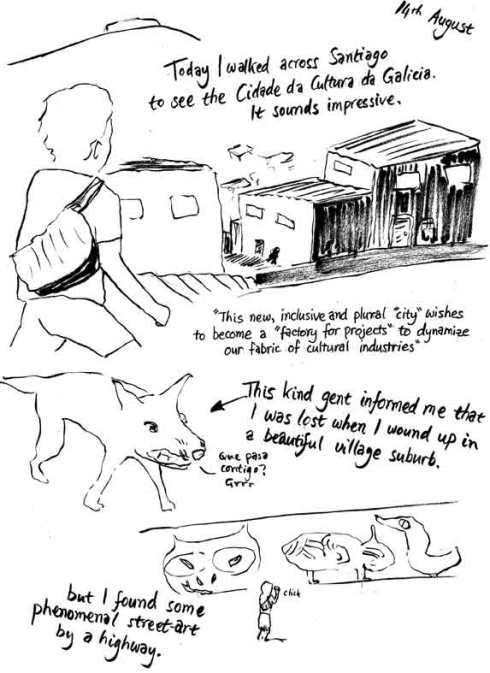 14th August
Today I walked across Santiago
to see the Cidade da Cultura da Galicia.
It sounds impressive.
"This new, inclusive and plural "city" wishes
to become a "factory for projects" to dynamize
our fabric of cultural industries"
This kind gent informed me that
I was lost when I wound up in
a beautiful village suburb.
Que pasa
contigo?
Grrr
click
but I found some
phenomenal street-art
by a highway.